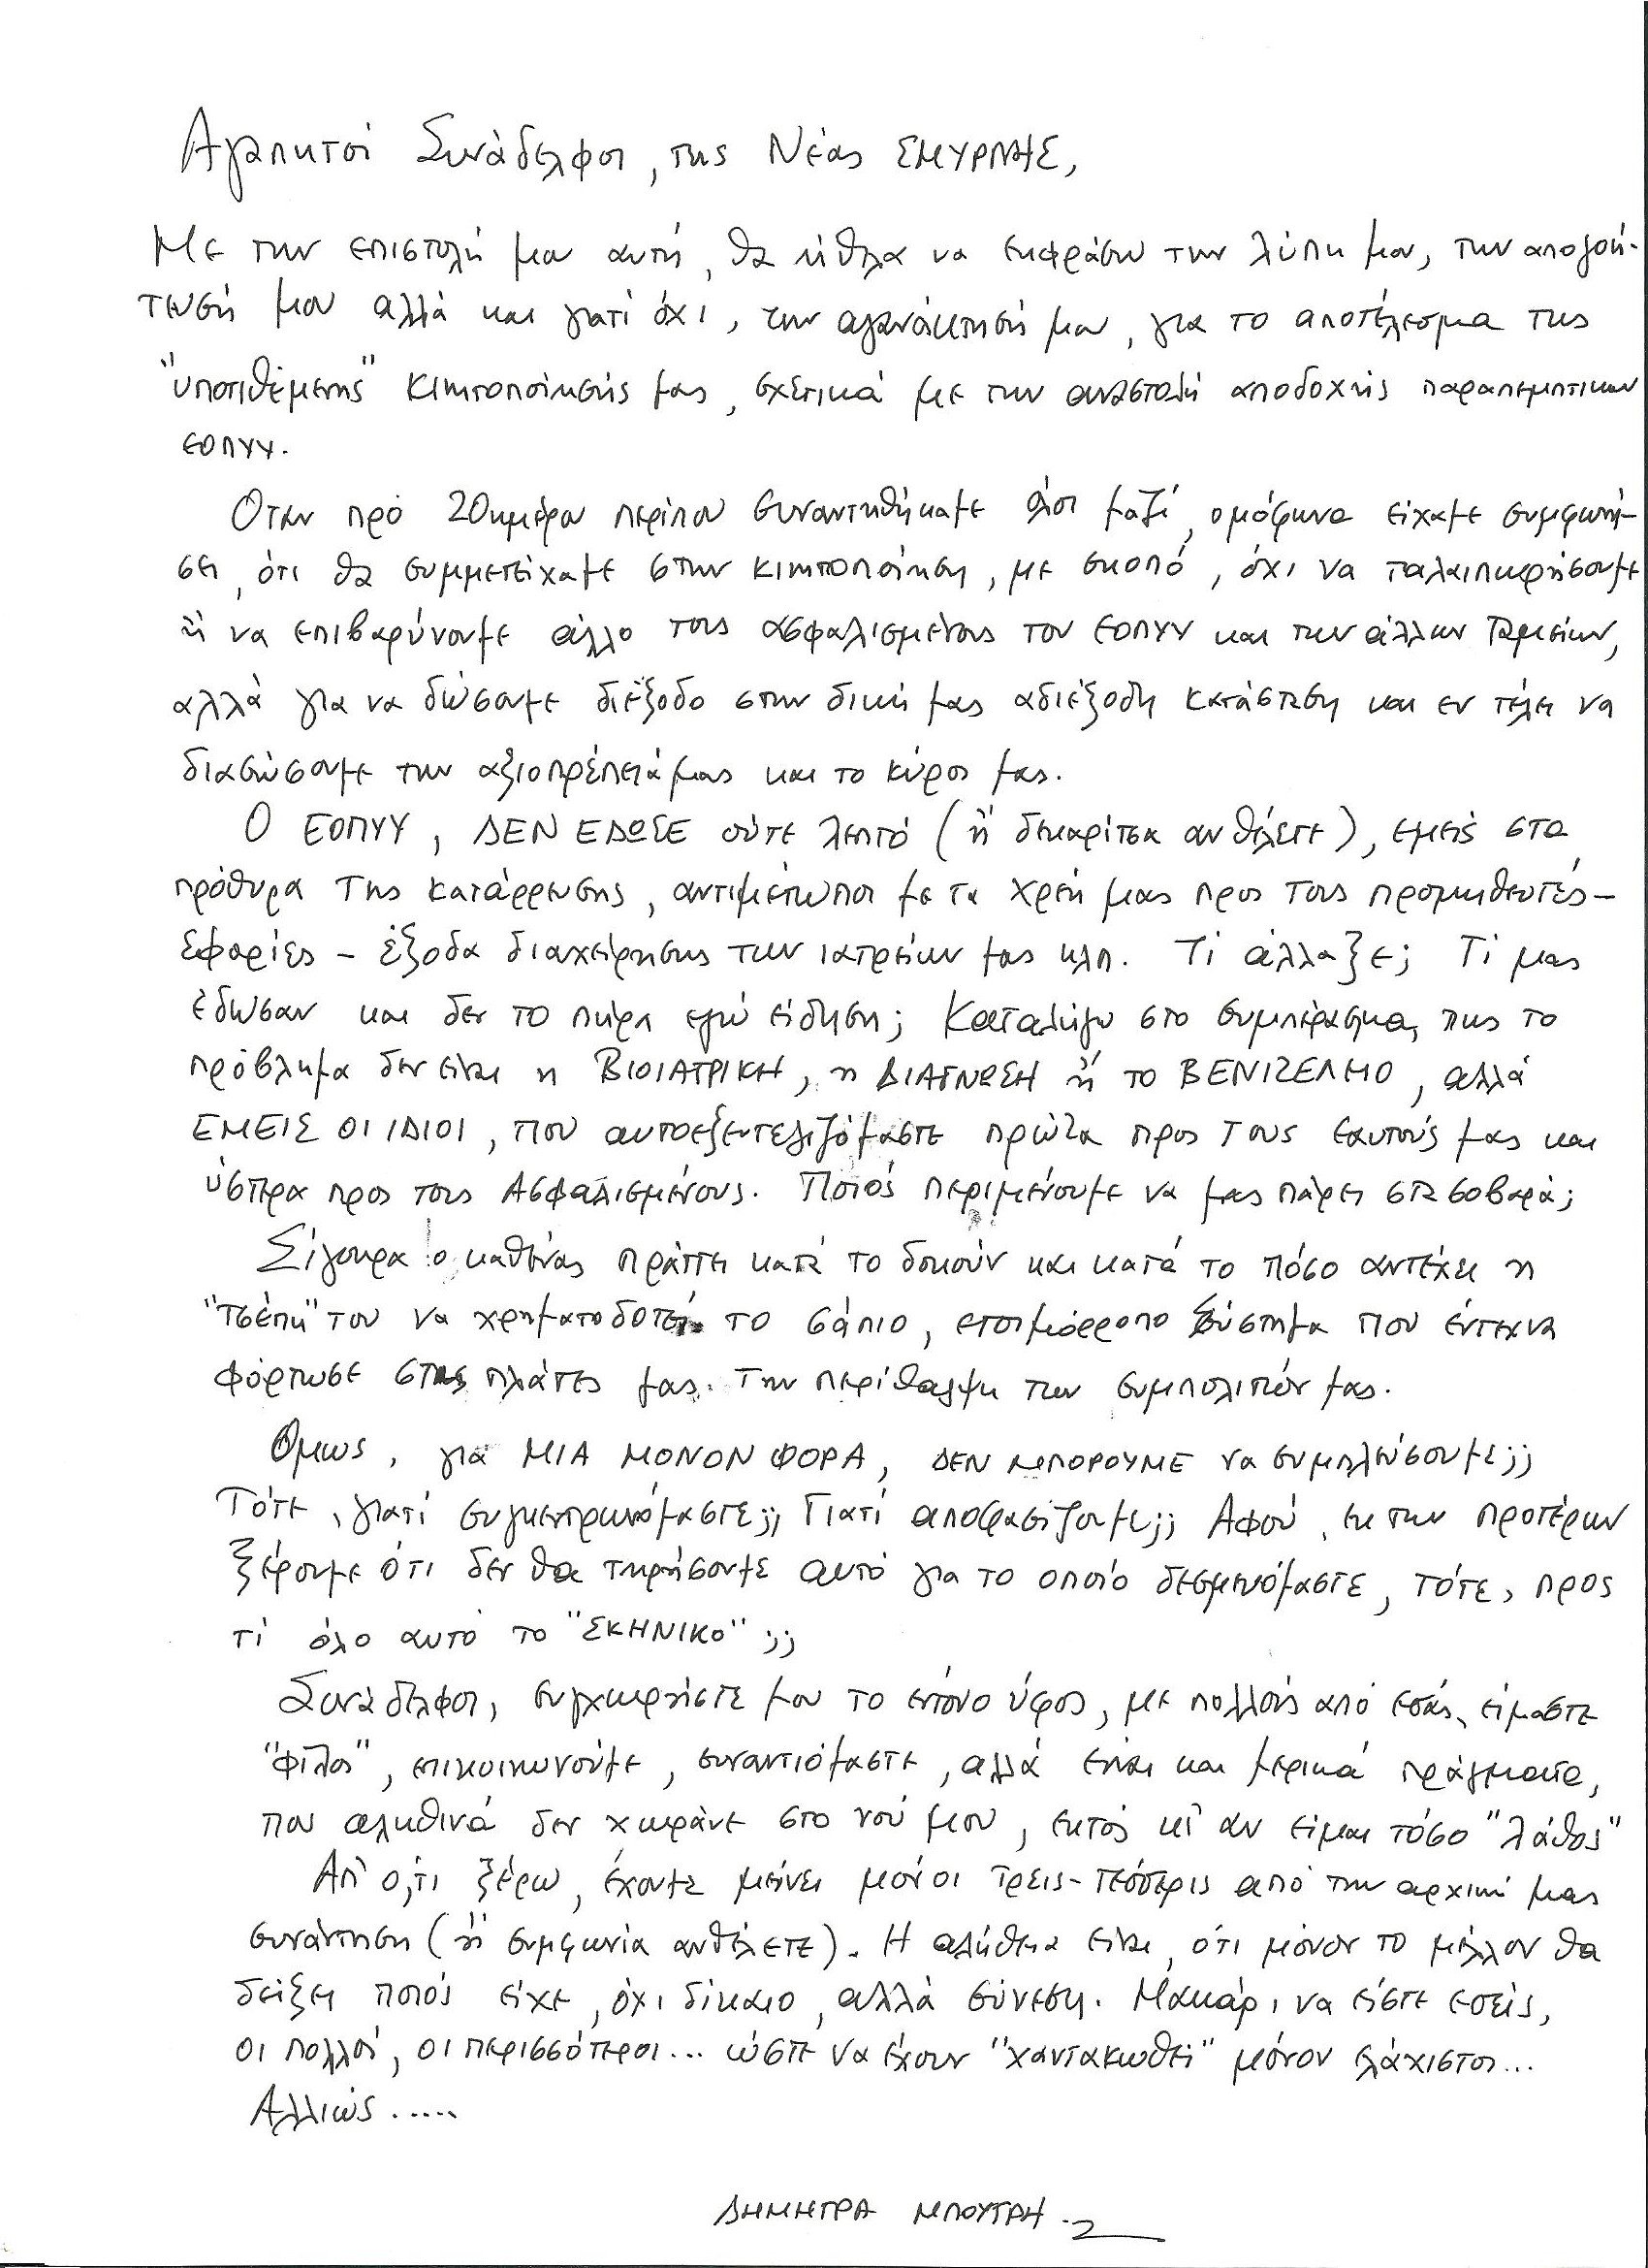 Αγαπητοί Συνάδελφοι, της Νέας ΣΜΥΡΝΗΣ,
Με την επιστολή μου αυτή, θα ήθελα να εκφράσω την λύπη μου, την απογοή-
τευσή μου αλλά και γιατί όχι, την αγανάκτησή μου, για το αποτέλεσμα της
"υποτιθέμενης" κινητοποίησής μας, σχετικά με την αναστολή αποδοχής παραπεμπτικών
ΕΟΠΥΥ.
Όταν προ 20ημέρου περίπου συναντηθήκαμε όλοι μαζί, ομόφωνα είχαμε συμφωνή-
σει, ότι θα συμμετείχαμε στην κινητοποίηση, με σκοπό, όχι να ταλαιπωρήσουμε
ή να επιβαρύνουμε άλλο τους ασφαλισμένους του ΕΟΠΥΥ και των άλλων Ταμείων,
αλλά για να δώσουμε διέξοδο στην δική μας αδιέξοδη κατάσταση και εν τέλει να
διασώσουμε την αξιοπρέπειά μας και το κύρος μας.
Ο ΕΟΠΥΥ, ΔΕΝ ΕΔΩΣΕ ούτε λεπτό (ή δεκαρίτσα αν θέλετε), εμείς στα
πρόθυρα της κατάρρευσης, αντιμέτωποι με τα χρέη μας προς τους προμηθευτές-
εφορίες - έξοδα διαχείρησης των ιατρείων μας κλπ. Τί άλλαξε; Τί μας
έδωσαν και δεν το πήρα εγώ είδηση; Καταλήγω στο συμπέρασμα, πως το
πρόβλημα δεν είναι η ΒΙΟΙΑΤΡΙΚΗ, η ΔΙΑΓΝΩΣΗ ή το ΒΕΝΙΖΕΛΕΙΟ, αλλά
ΕΜΕΙΣ ΟΙ ΙΔΙΟΙ, που αυτοεξευτελιζόμαστε πρώτα προς τους εαυτούς μας και
ύστερα προς τους Ασφαλισμένους. Ποιός περιμένουμε να μας πάρει στα σοβαρά;
Σίγουρα ο καθένας πράττει κατά το δοκούν και κατά το πόσο αντέχει η
"τσέπη" του να χρηματοδοτεί το σάπιο, ετοιμόρροπο Σύστημα που έντεχνα
φόρτωσε στις πλάτες μας. Την περίθαλψη των συμπολιτών μας.
Όμως, για ΜΙΑ ΜΟΝΟΝ ΦΟΡΑ, ΔΕΝ ΜΠΟΡΟΥΜΕ να συμπλεύσουμε;;
Τότε, γιατί συγκεντρωνόμαστε;;; Γιατί αποφασίζουμε;; Αφού, εκ των προτέρων
ξέρουμε ότι δεν θα τηρήσουμε αυτό για το οποίο δεσμευόμαστε, τότε, προς
τί όλο αυτό το "ΣΚΗΝΙΚΟ";;
Συνάδελφοι, συγχωρήστε μου το έντονο ύφος, με πολλούς από εσάς, είμαστε
"φίλοι", επικοινωνούμε, συναντιόμαστε, αλλά είναι και μερικά πράγματα,
που αληθινά δεν χωράνε στο νού μου, εκτός κι αν είμαι τόσο "λάθος"
Απ' ό,τι ξέρω, έχουμε μείνει μόνοι τρεις-τέσσερις από την αρχική μας
συνάντηση (ή συμφωνία αν θέλετε). Η αλήθεια είναι, ότι μόνον το μέλλον θα
δείξει ποιός είχε, όχι δίκαιο, αλλά σύνεση. Μακάρι, να είστε εσείς,
οι πολλοί, οι περισσότεροι... ώστε να έχουν "χαντακωθεί" μόνον ελάχιστοι...
Αλλιώς.....
ΔΗΜΗΤΡΑ ΜΠΟΥΤΡΗ